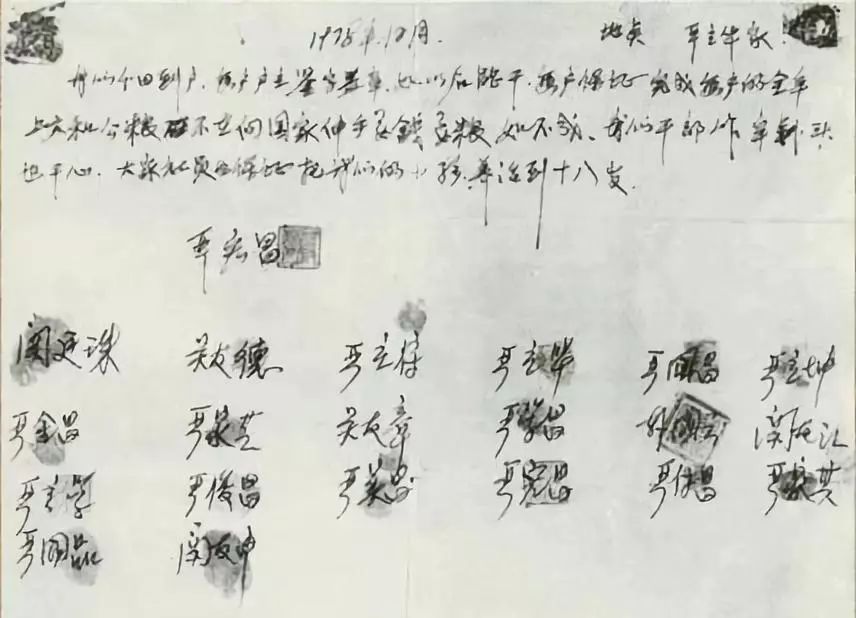 1978年12月. 地点 严立华家
我们分田到户,每户户主签字盖章,如以后能干,每户保证完成每户的全年
上交和公粮,不在向国家伸手要钱要粮,如不成,我们干部作牢刹头
也干心,大家社员也保证把我们的小孩养活到十八岁.
严宏昌
関廷珠 关友德 严立付 严立华 严国昌 严立坤
严金昌 严家芝 关友章 严学昌 韩国云 関友江
严立学 严俊昌 严美昌 严宏昌 严付昌 严家其
严国品 関友申